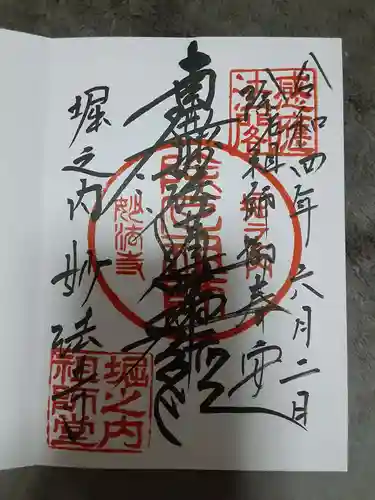 令和四年六月二日
除厄祖師御奉安
南無妙法蓮華経
堀之内妙法寺
妙法寺
堀之内
祖師堂